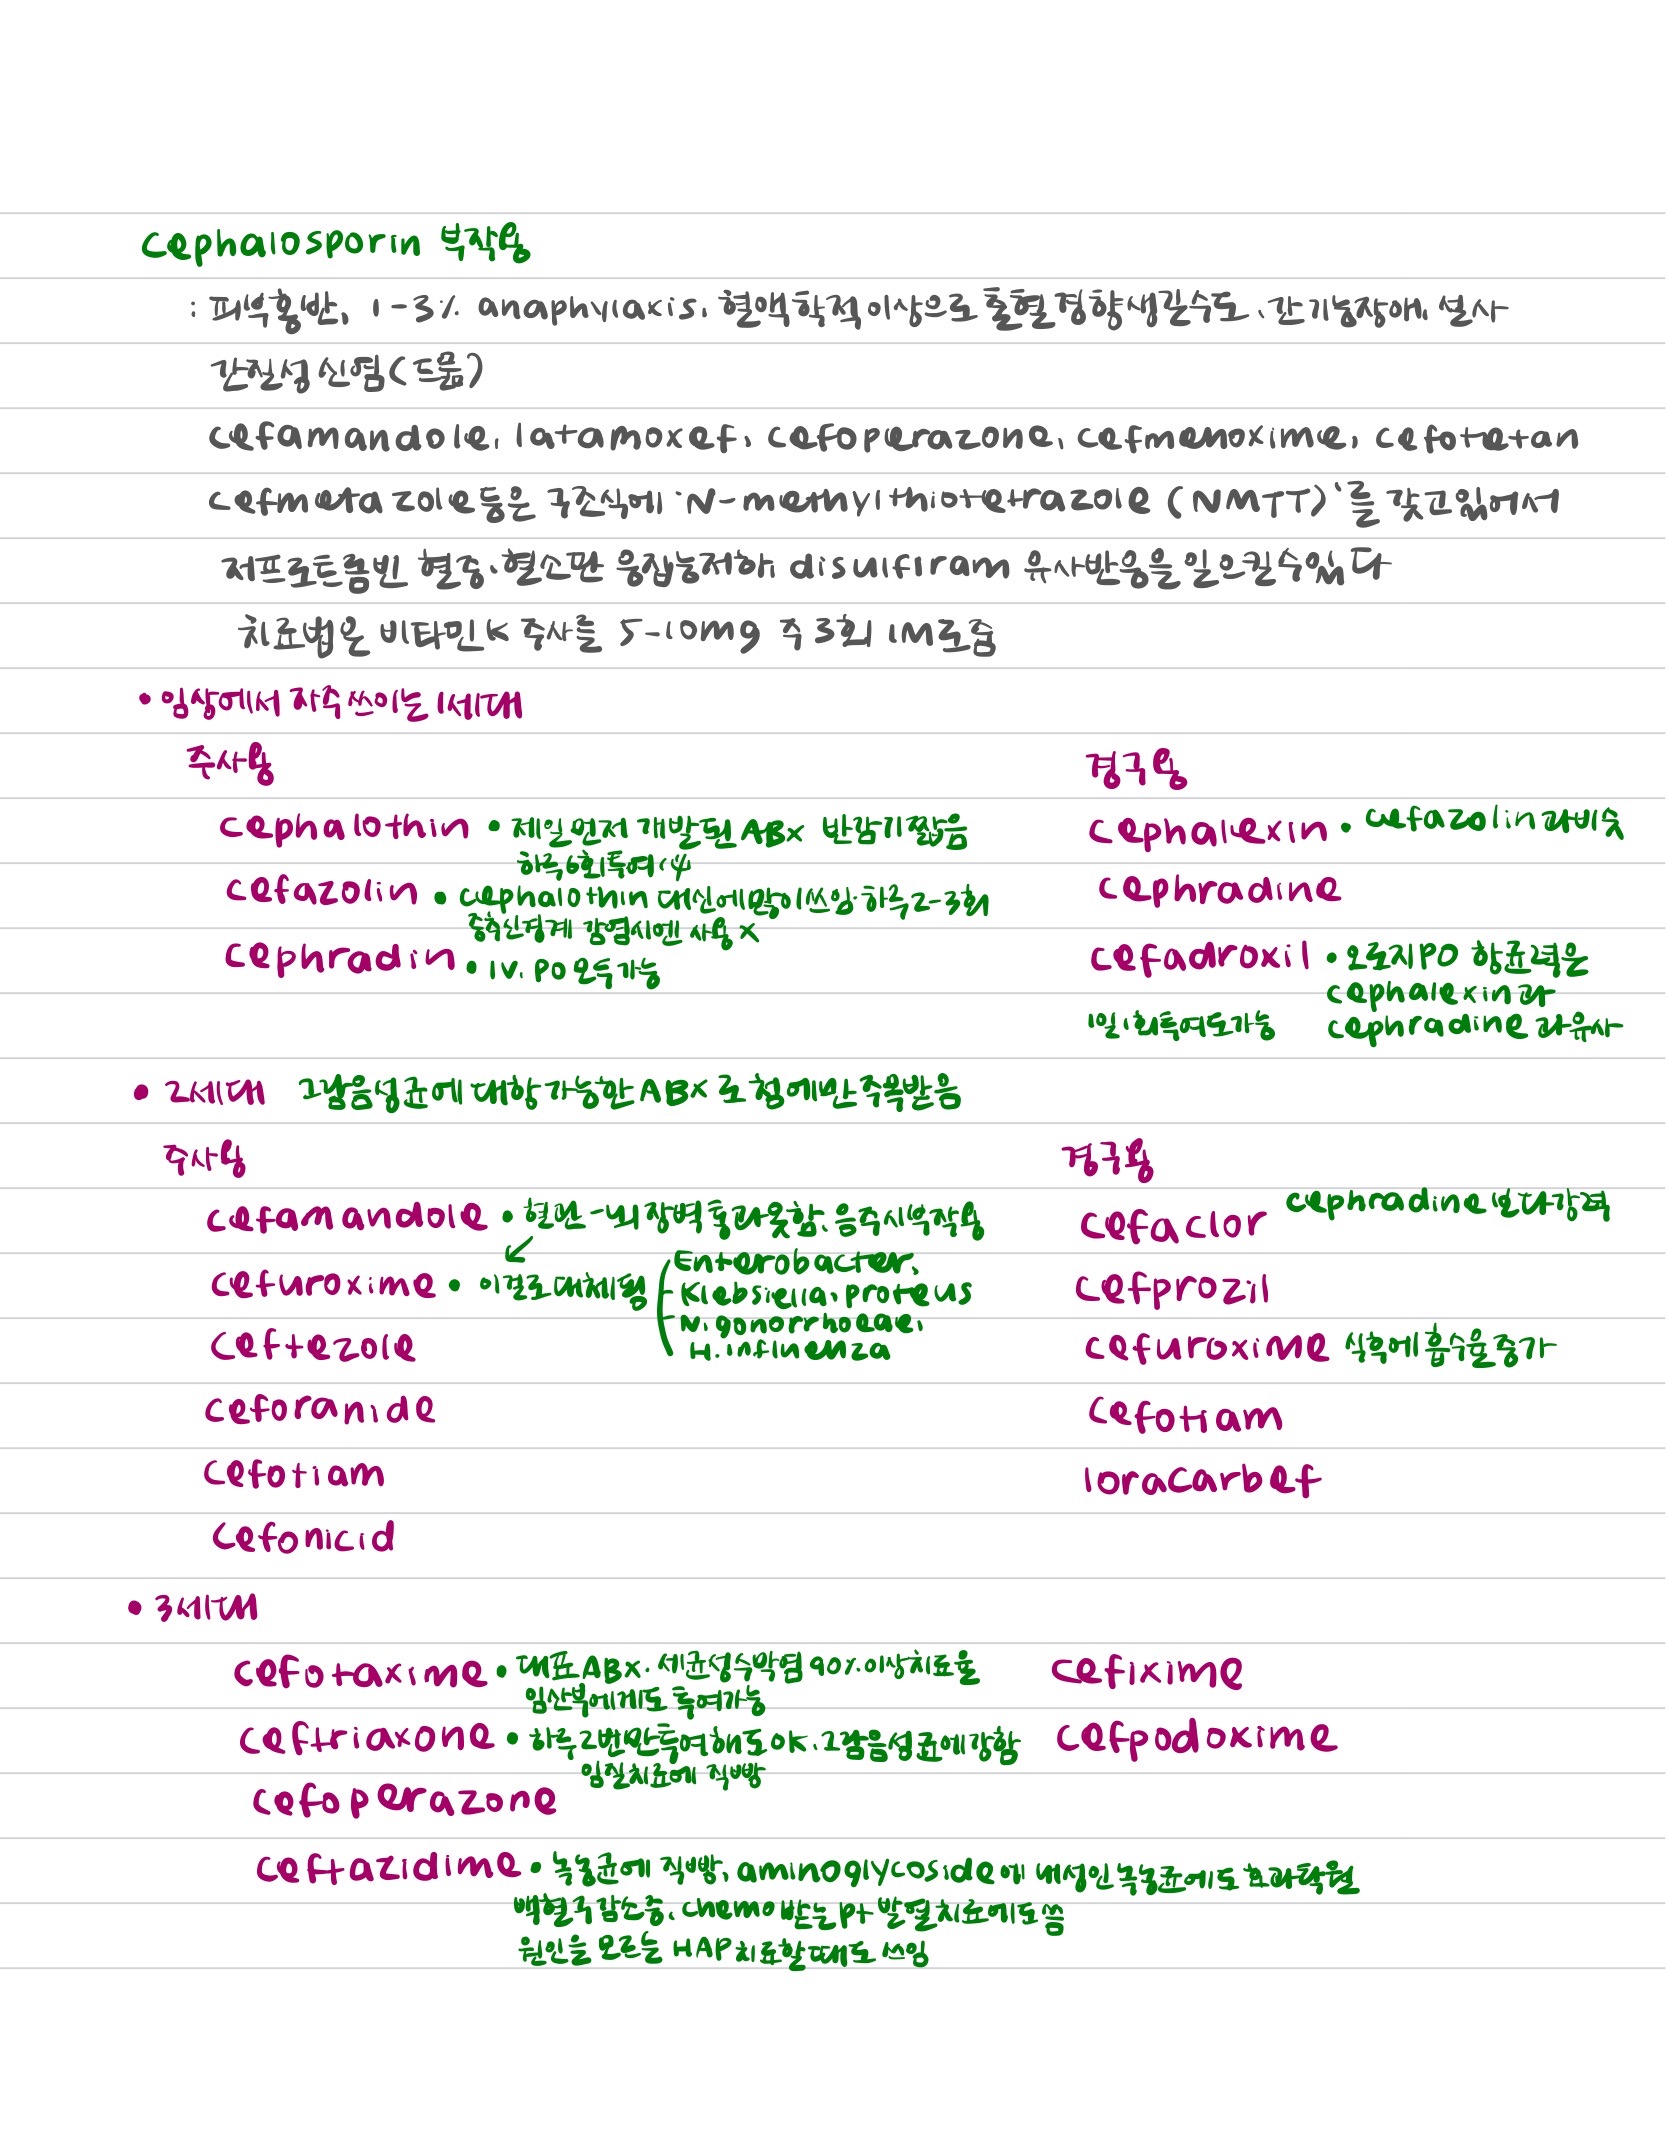 cephalosporin 부작용
: 피부홍반, 1-3% anaphylaxis, 혈액학적이상으로 출혈경향생길수도, 간기능장애, 설사
간질성신염(드뭄)
cefamandole, latamoxef, cefoperazone, cefmenoxime, cefotetan
cefmetazole등은 구조식에 'N-methylthiotetrazole (NMTT)'를 갖고있어서
저프로트롬빈 혈증, 혈소판 응집능저하, disulfiram 유사반응을 일으킬수있다
치료법은 비타민K 주사를 5-10mg 주3회 IM로줌
• 임상에서 자주쓰이는 1세대
주사용 경구용
cephalothin • 제일먼저 개발된 ABx 반감기짧음 cephalexin • cefazolin과비슷
하루6회투여
cefazolin • cephalothin 대신에많이쓰임·하루2-3회 cephradine
중추신경계 감염시엔 사용 x
cephradin • IV, PO 모두가능 cefadroxil • 오로지PO 항균력은
cephalexin과
1일1회투여도가능 cephradine과유사
• 2세대 그람음성균에 대항가능한 ABx로 첨에만주목받음
주사용 경구용
cefamandole • 혈관-뇌장벽통과못함, 음주시부작용 cefaclor cephradine보다강력
↙
cefuroxime • 이걸로대체됨 Enterobacter, cefprozil
Klebsiella, proteus
N. gonorrhoeae,
H. influenza
ceftezole cefuroxime 식후에흡수율증가
ceforanide cefotiam
cefotiam loracarbef
cefonicid
• 3세대
cefotaxime • 대표ABx. 세균성수막염 90%이상치료율 cefixime
임산부에게도 투여가능
ceftriaxone • 하루2번만투여해도OK. 그람음성균에강함 cefpodoxime
임질치료에 직빵
cefoperazone
ceftazidime • 녹농균에 직빵, aminoglycoside에 내성인녹농균에도 효과탁월
백혈구감소증, chemo받는pt 발열치료에도씀
원인을 모르는 HAP치료할때도 쓰임